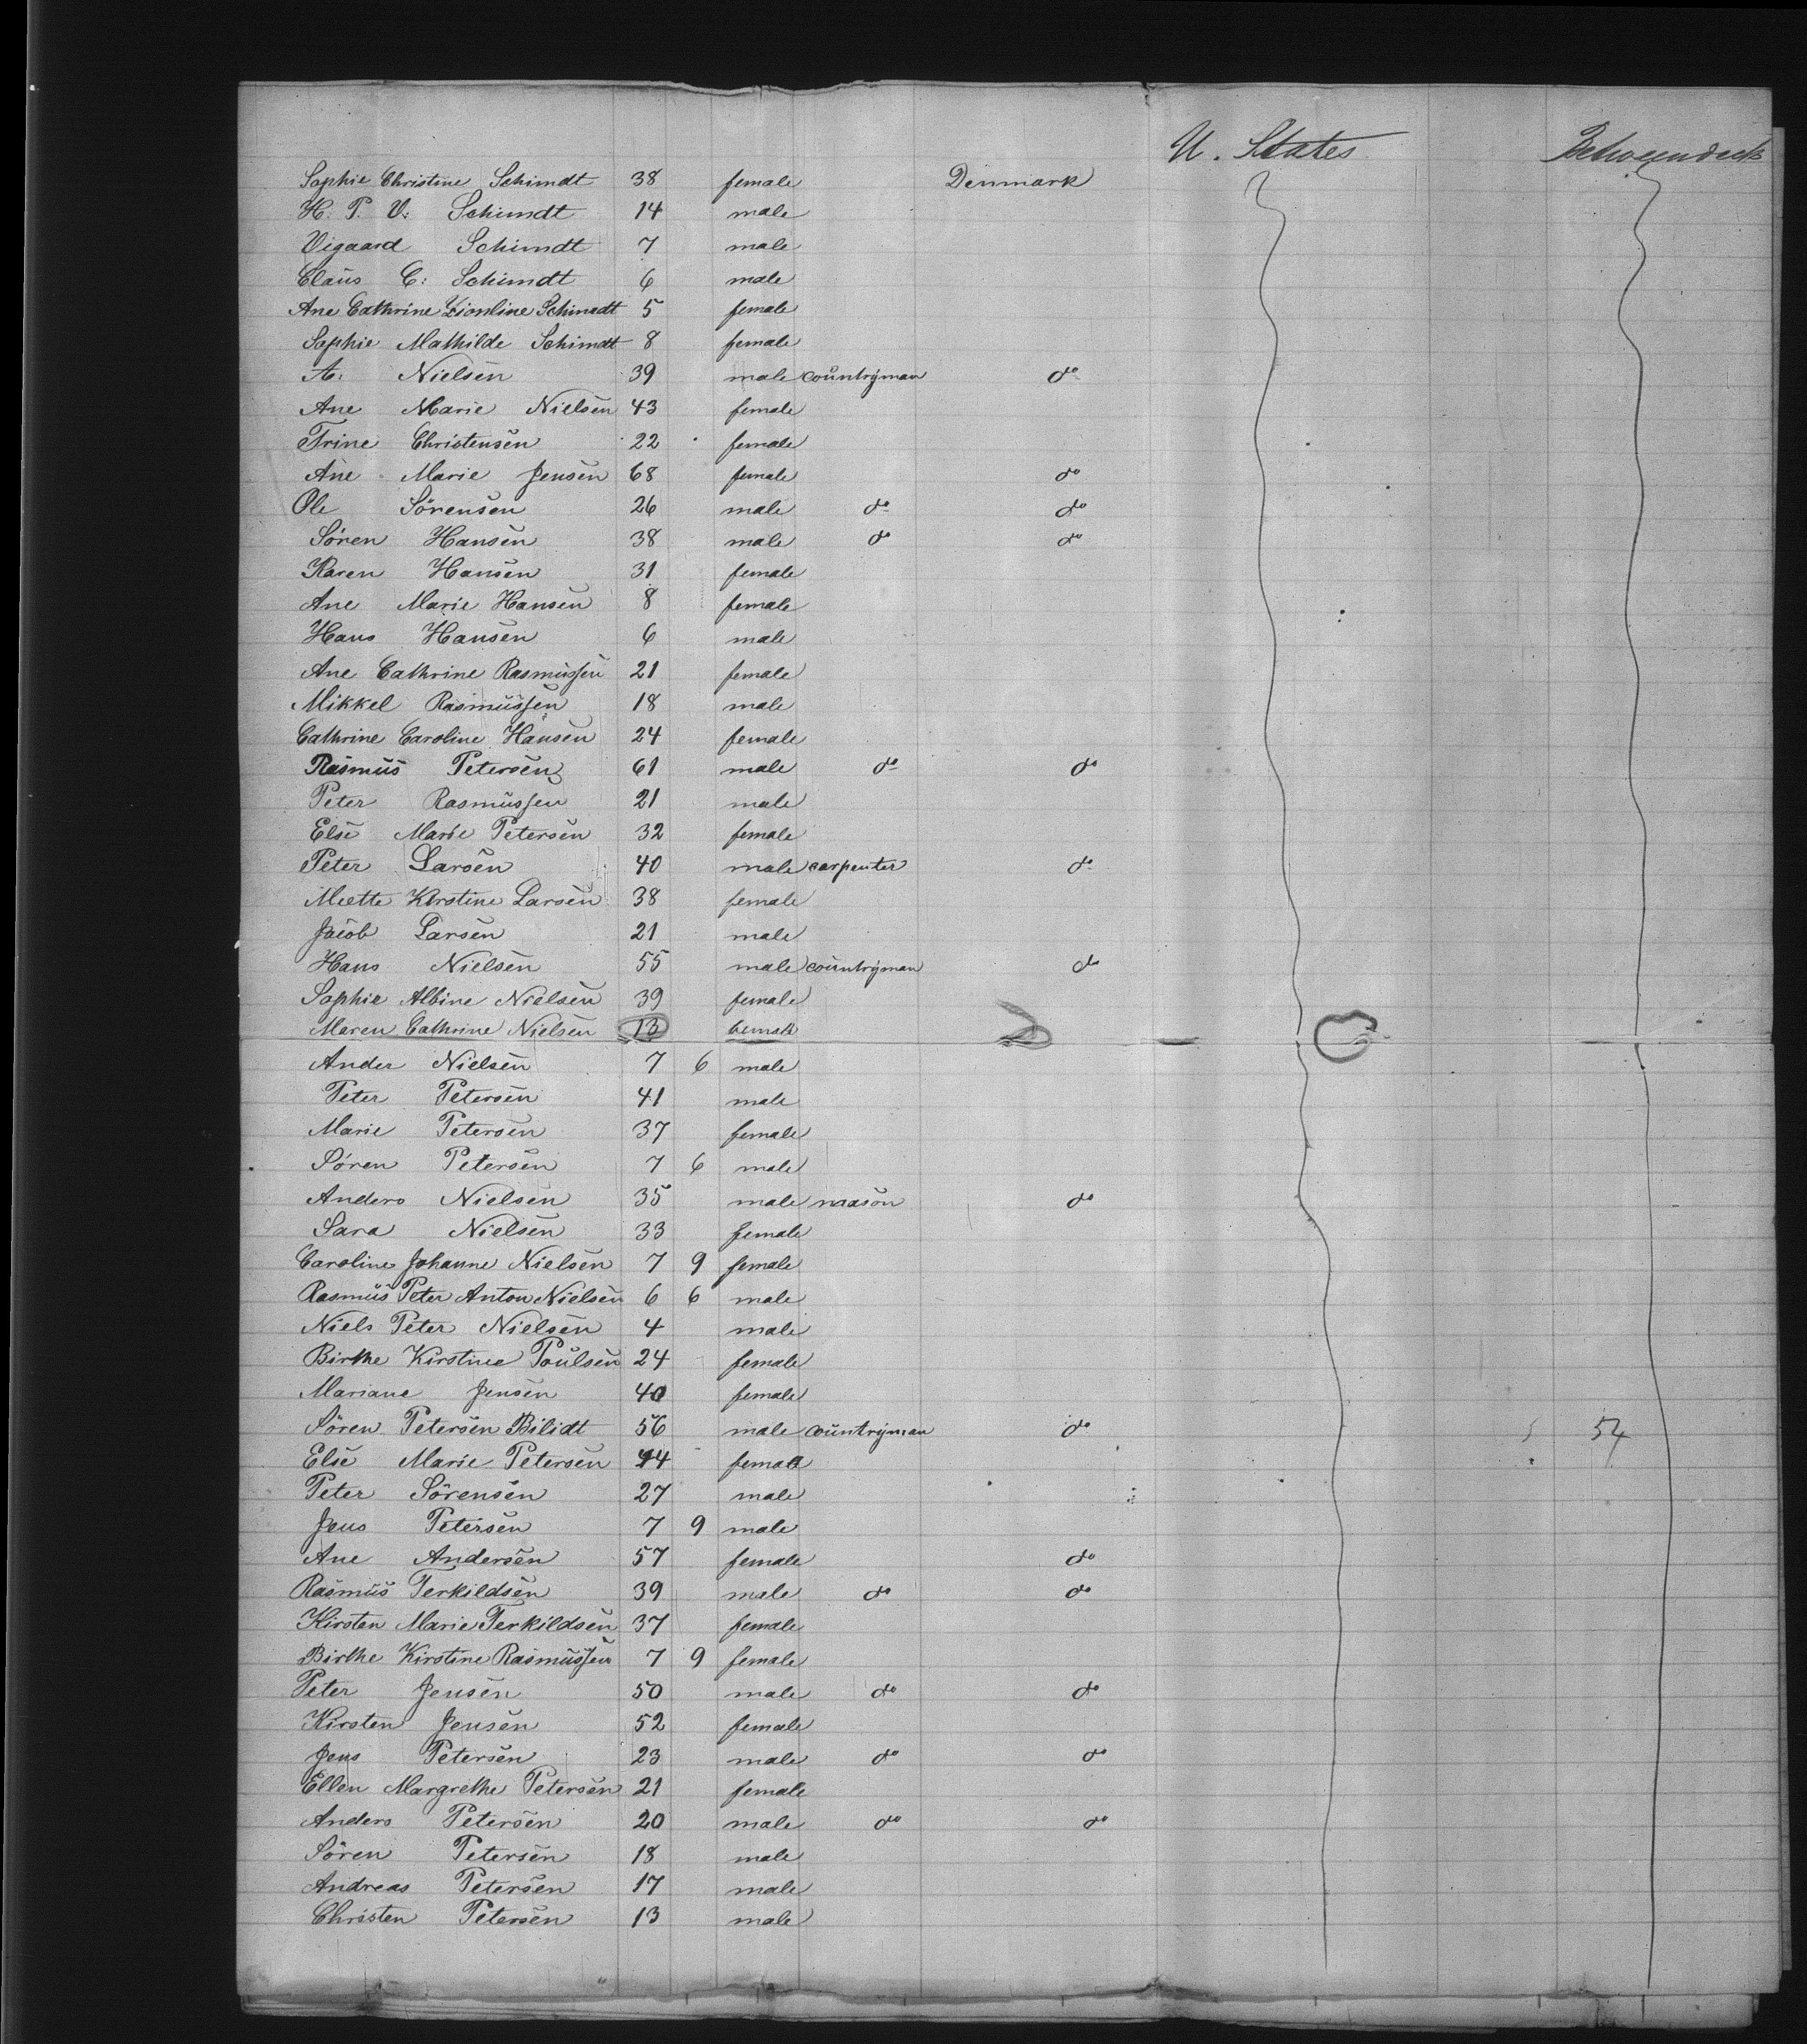 U. States Betweendeck
Sophie Christine Schimdt 38 female Denmark
H. P. V. Schimdt 14 male
Vigaard Schimdt 7 male
Claus C: Schimdt 6 male
Ane Cathrine Schimdt 5 female
Sophie Mathilde Schimdt 8 female
A: Nielsen 39 male countryman do
Ane Marie Nielsen 43 female
Trine Christensen 22 female
Ane Marie Jensen 68 female do
Ole Sörensen 26 male do do
Sören Hansen 38 male do do
Karen Hansen 31 female
Ane Marie Hansen 8 female
Hans Hansen 6 male
Ane Cathrine Rasmussen 21 female
Mikkel Rasmussen 18 male
Cathrine Caroline Hansen 24 female
Rasmus Petersen 61 male do do
Peter Rasmussen 21 male
Else Marie Petersen 32 female
Peter Larsen 40 male carpenter do
Mette Kirstine Larsen 38 female
Jacob Larsen 21 male
Hans Nielsen 55 male countryman do
Sophie Albine Nielsen 39 female
Maren Cathrine Nielsen 13 female
Ander Nielsen 7 6 male
Peter Petersen 41 male
Marie Petersen 37 female
Sören Petersen 7 6 male
Anders Nielsen 35 male mason do
Sara Nielsen 33 female
Caroline Johanne Nielsen 7 9 female
Rasmus Peter Anton Nielsen 6 6 male
Niels Peter Nielsen 4 male
Birthe Kirstine Poulsen 24 female
Mariane Jensen 40 female
Sören Petersen Bilidt 56 male countryman do 54
Else Marie Petersen 44 female
Peter Sörensen 27 male
Jens Petersen 7 9 male
Ane Andersen 57 female do
Rasmus Terkildsen 39 male do do
Kirsten Marie Terkildsen 37 female
Birthe Kirstine Rasmussen 7 9 female
Peter Jensen 50 male do do
Kirsten Jensen 52 female
Jens Petersen 23 male do do
Ellen Margrethe Petersen 21 female
Anders Petersen 20 male do do
Sören Petersen 18 male
Andreas Petersen 17 male
Christen Petersen 13 male